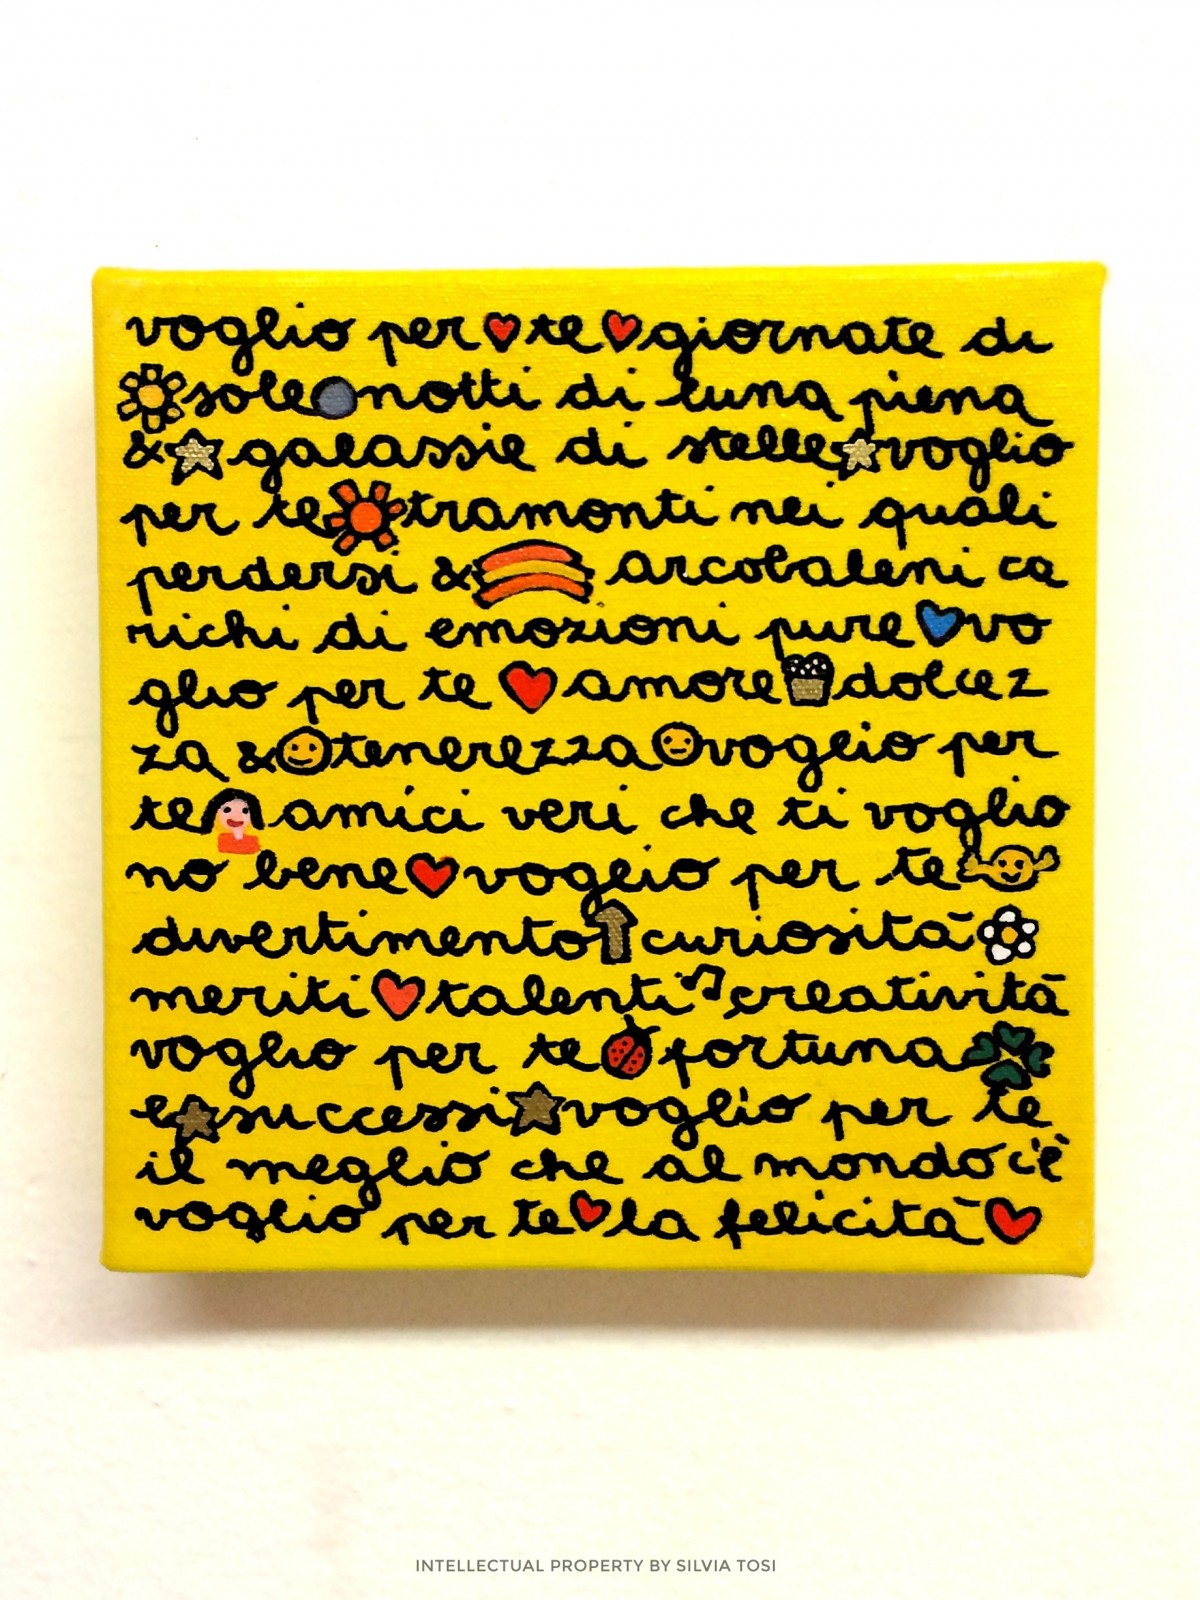 voglio per te giornate di
sole notti di luna piena
& galassie di stelle voglio
per te tramonti nei quali
perdersi & arcobaleni ca
richi di emozioni pure vo
glio per te amore dolcez
za & tenerezza voglio per
te amici veri che ti voglio
no bene voglio per te
divertimento curiosità
meriti talenti creatività
voglio per te fortuna
e successi voglio per te
il meglio che al mondo c'è
voglio per te la felicità
INTELLECTUAL PROPERTY BY SILVIA TOSI